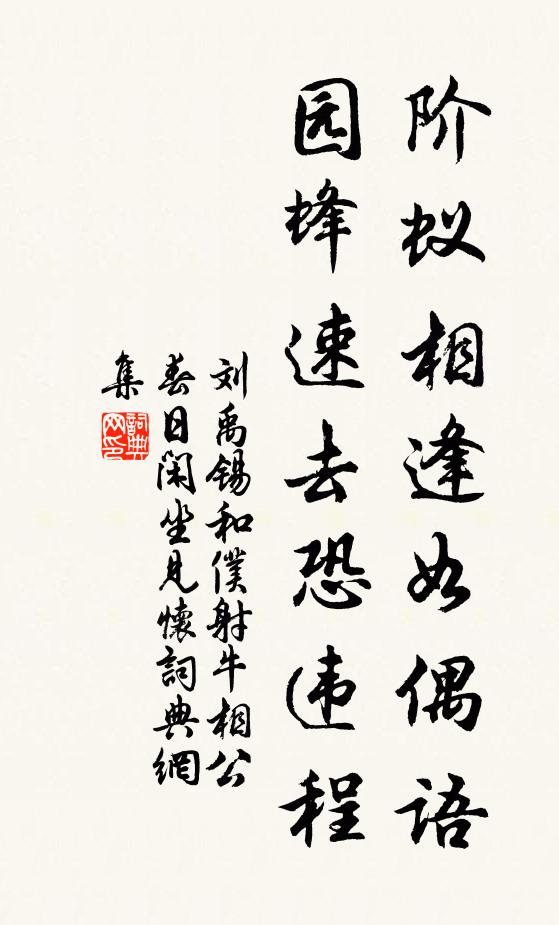 阶蚁相逢如偶语
园蜂速去恐违程
刘禹锡和僕射牛相公
春日闲坐见懷詞典網
集
詞典
网印